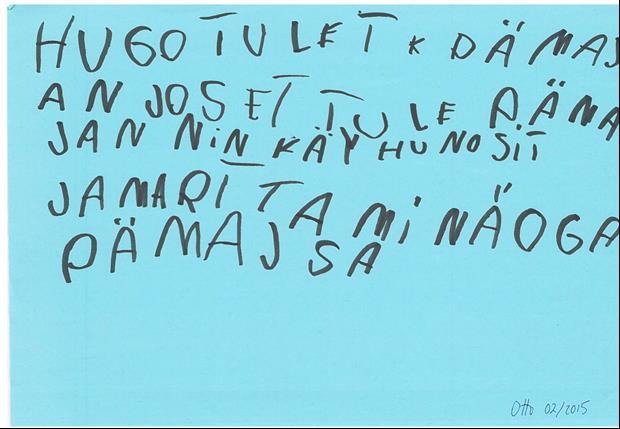 HUGO TULET K DÄMAJ
AN JOS ET TULE DÄMA
JAN NIN KÄY HUNOSIT
JA MARI TA MI NÄOGA
DÄMAJSA
Otto 02/2015